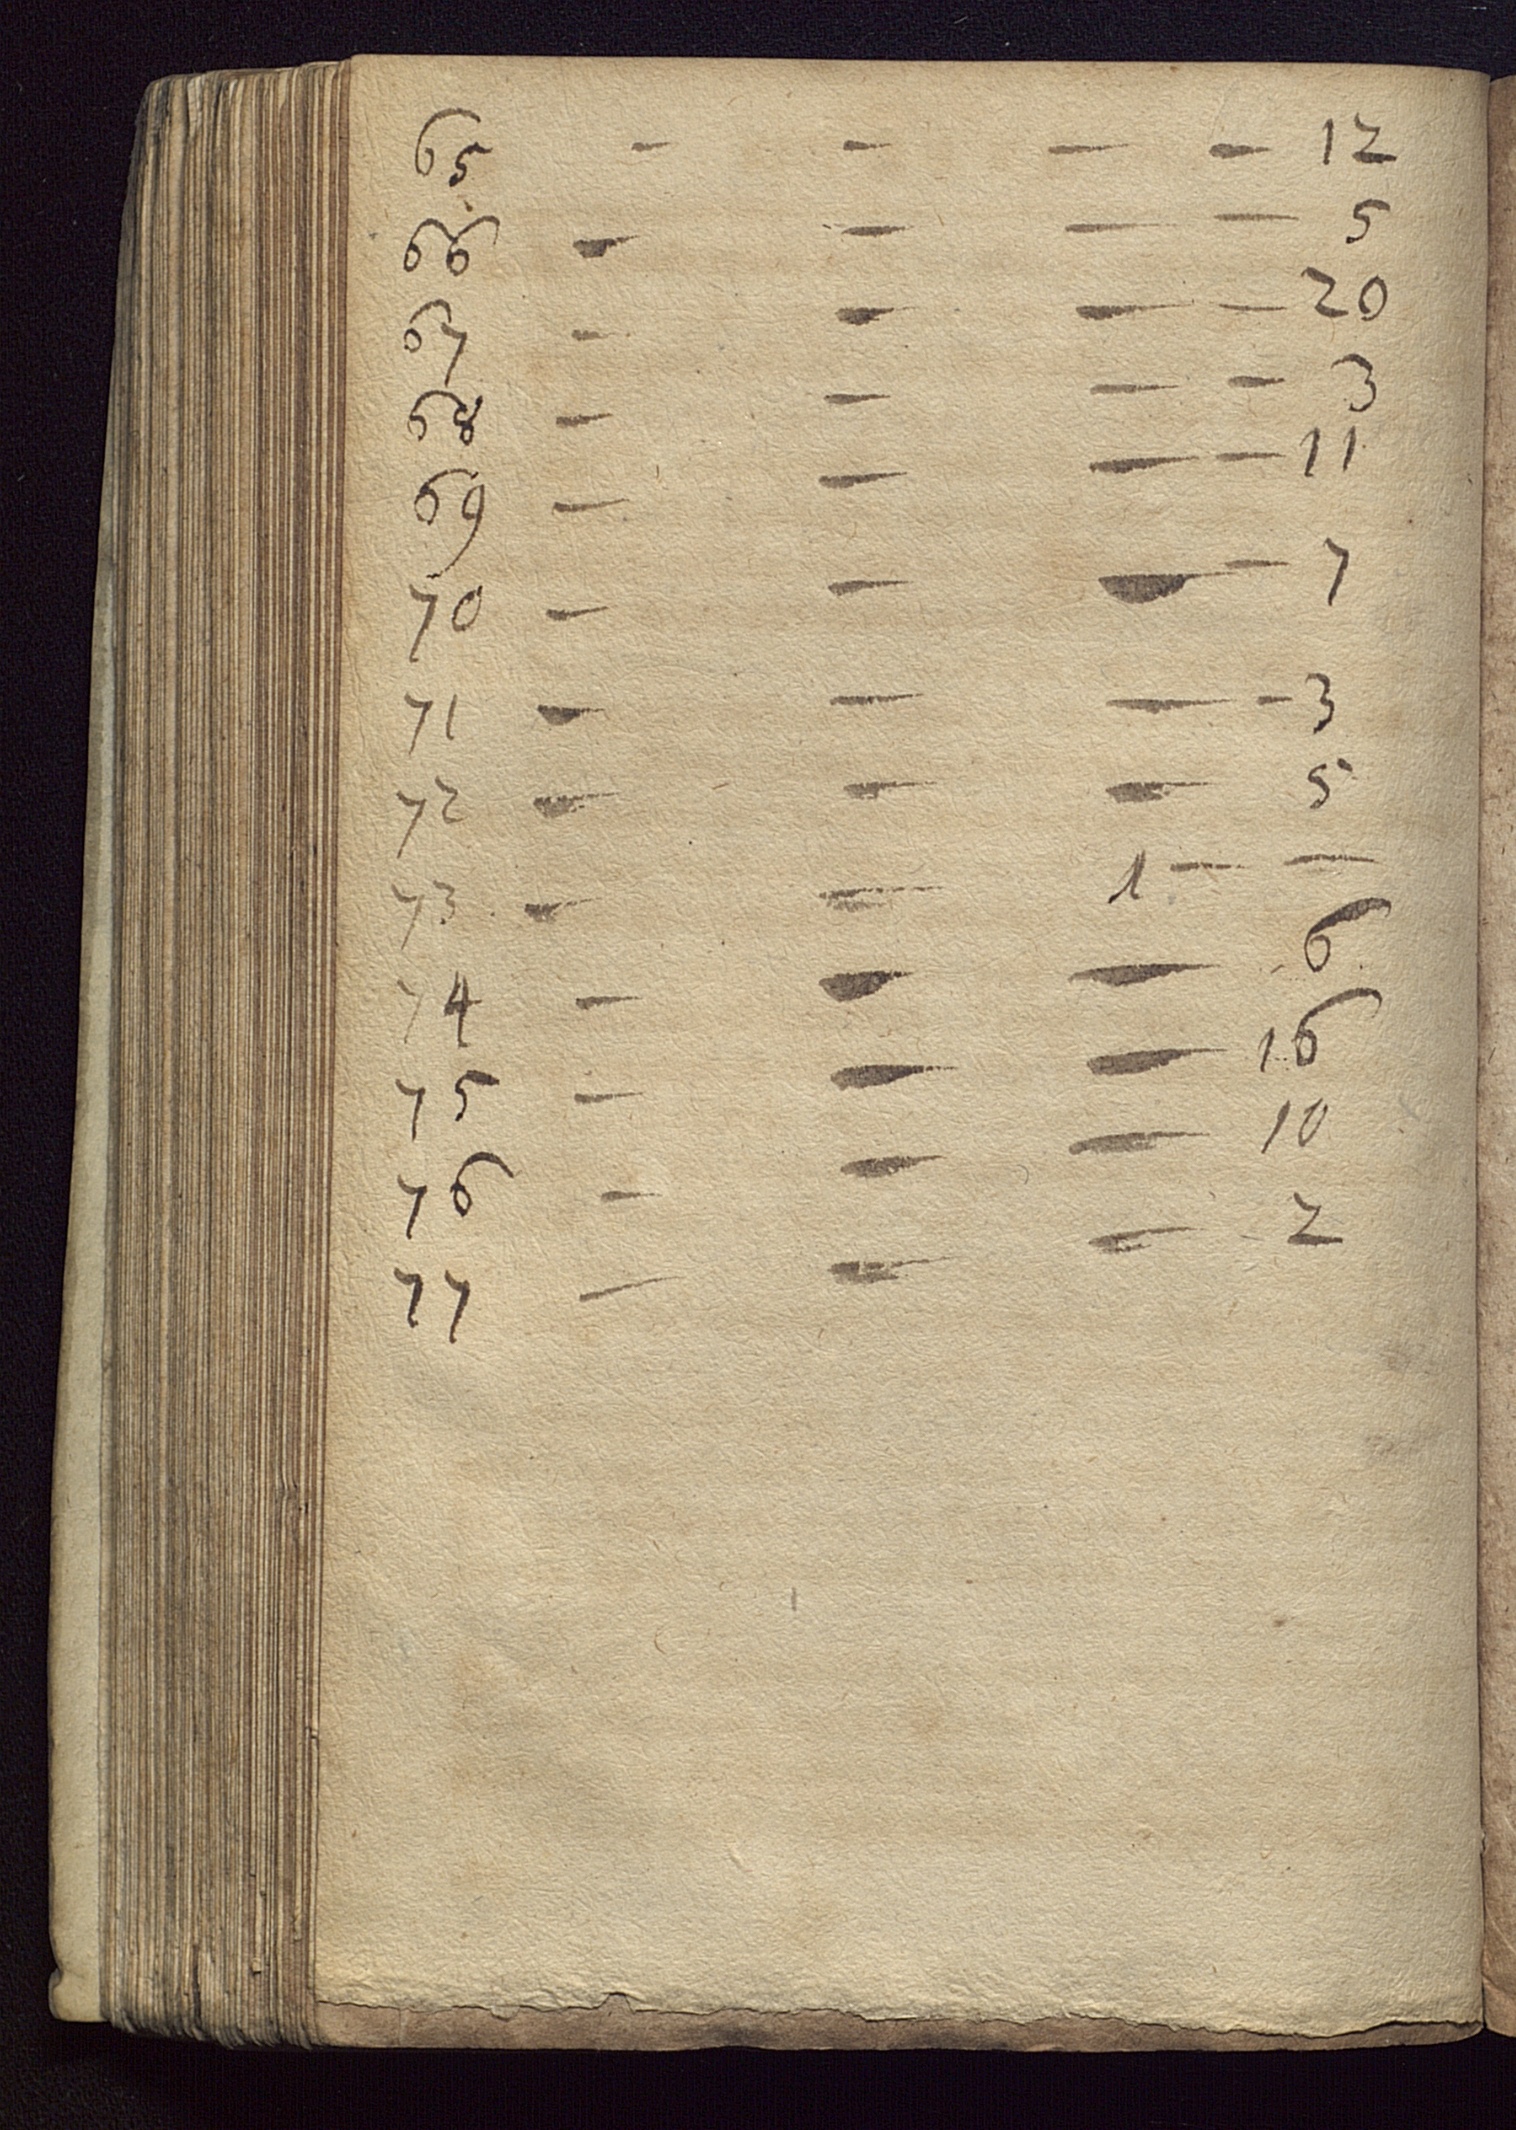 65 - - - - 12
66 - - - - 5
67 - - - - 20
68 - - - - 3
69 - - - - 11
70 - - - - 7
71 - - - - 3
72 - - - 5
73 - - 1 - -
74 - - - 6
75 - - - 16
76 - - - 10
77 - - - 2